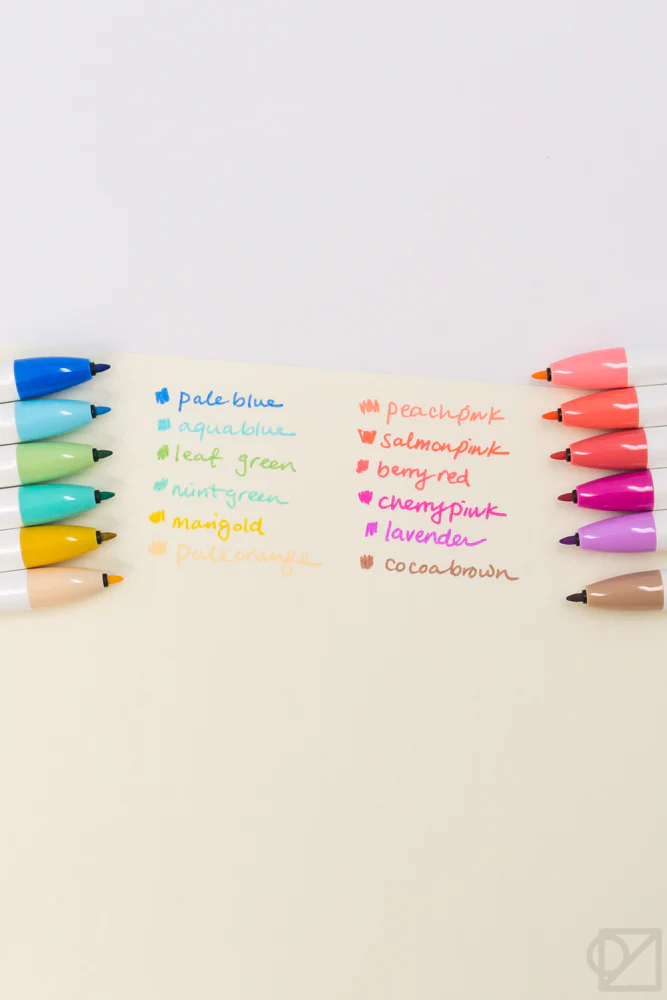 pale blue
aqua blue
leaf green
mint green
marigold
pale orange
peach pink
salmon pink
berry red
cherry pink
lavender
cocoa brown